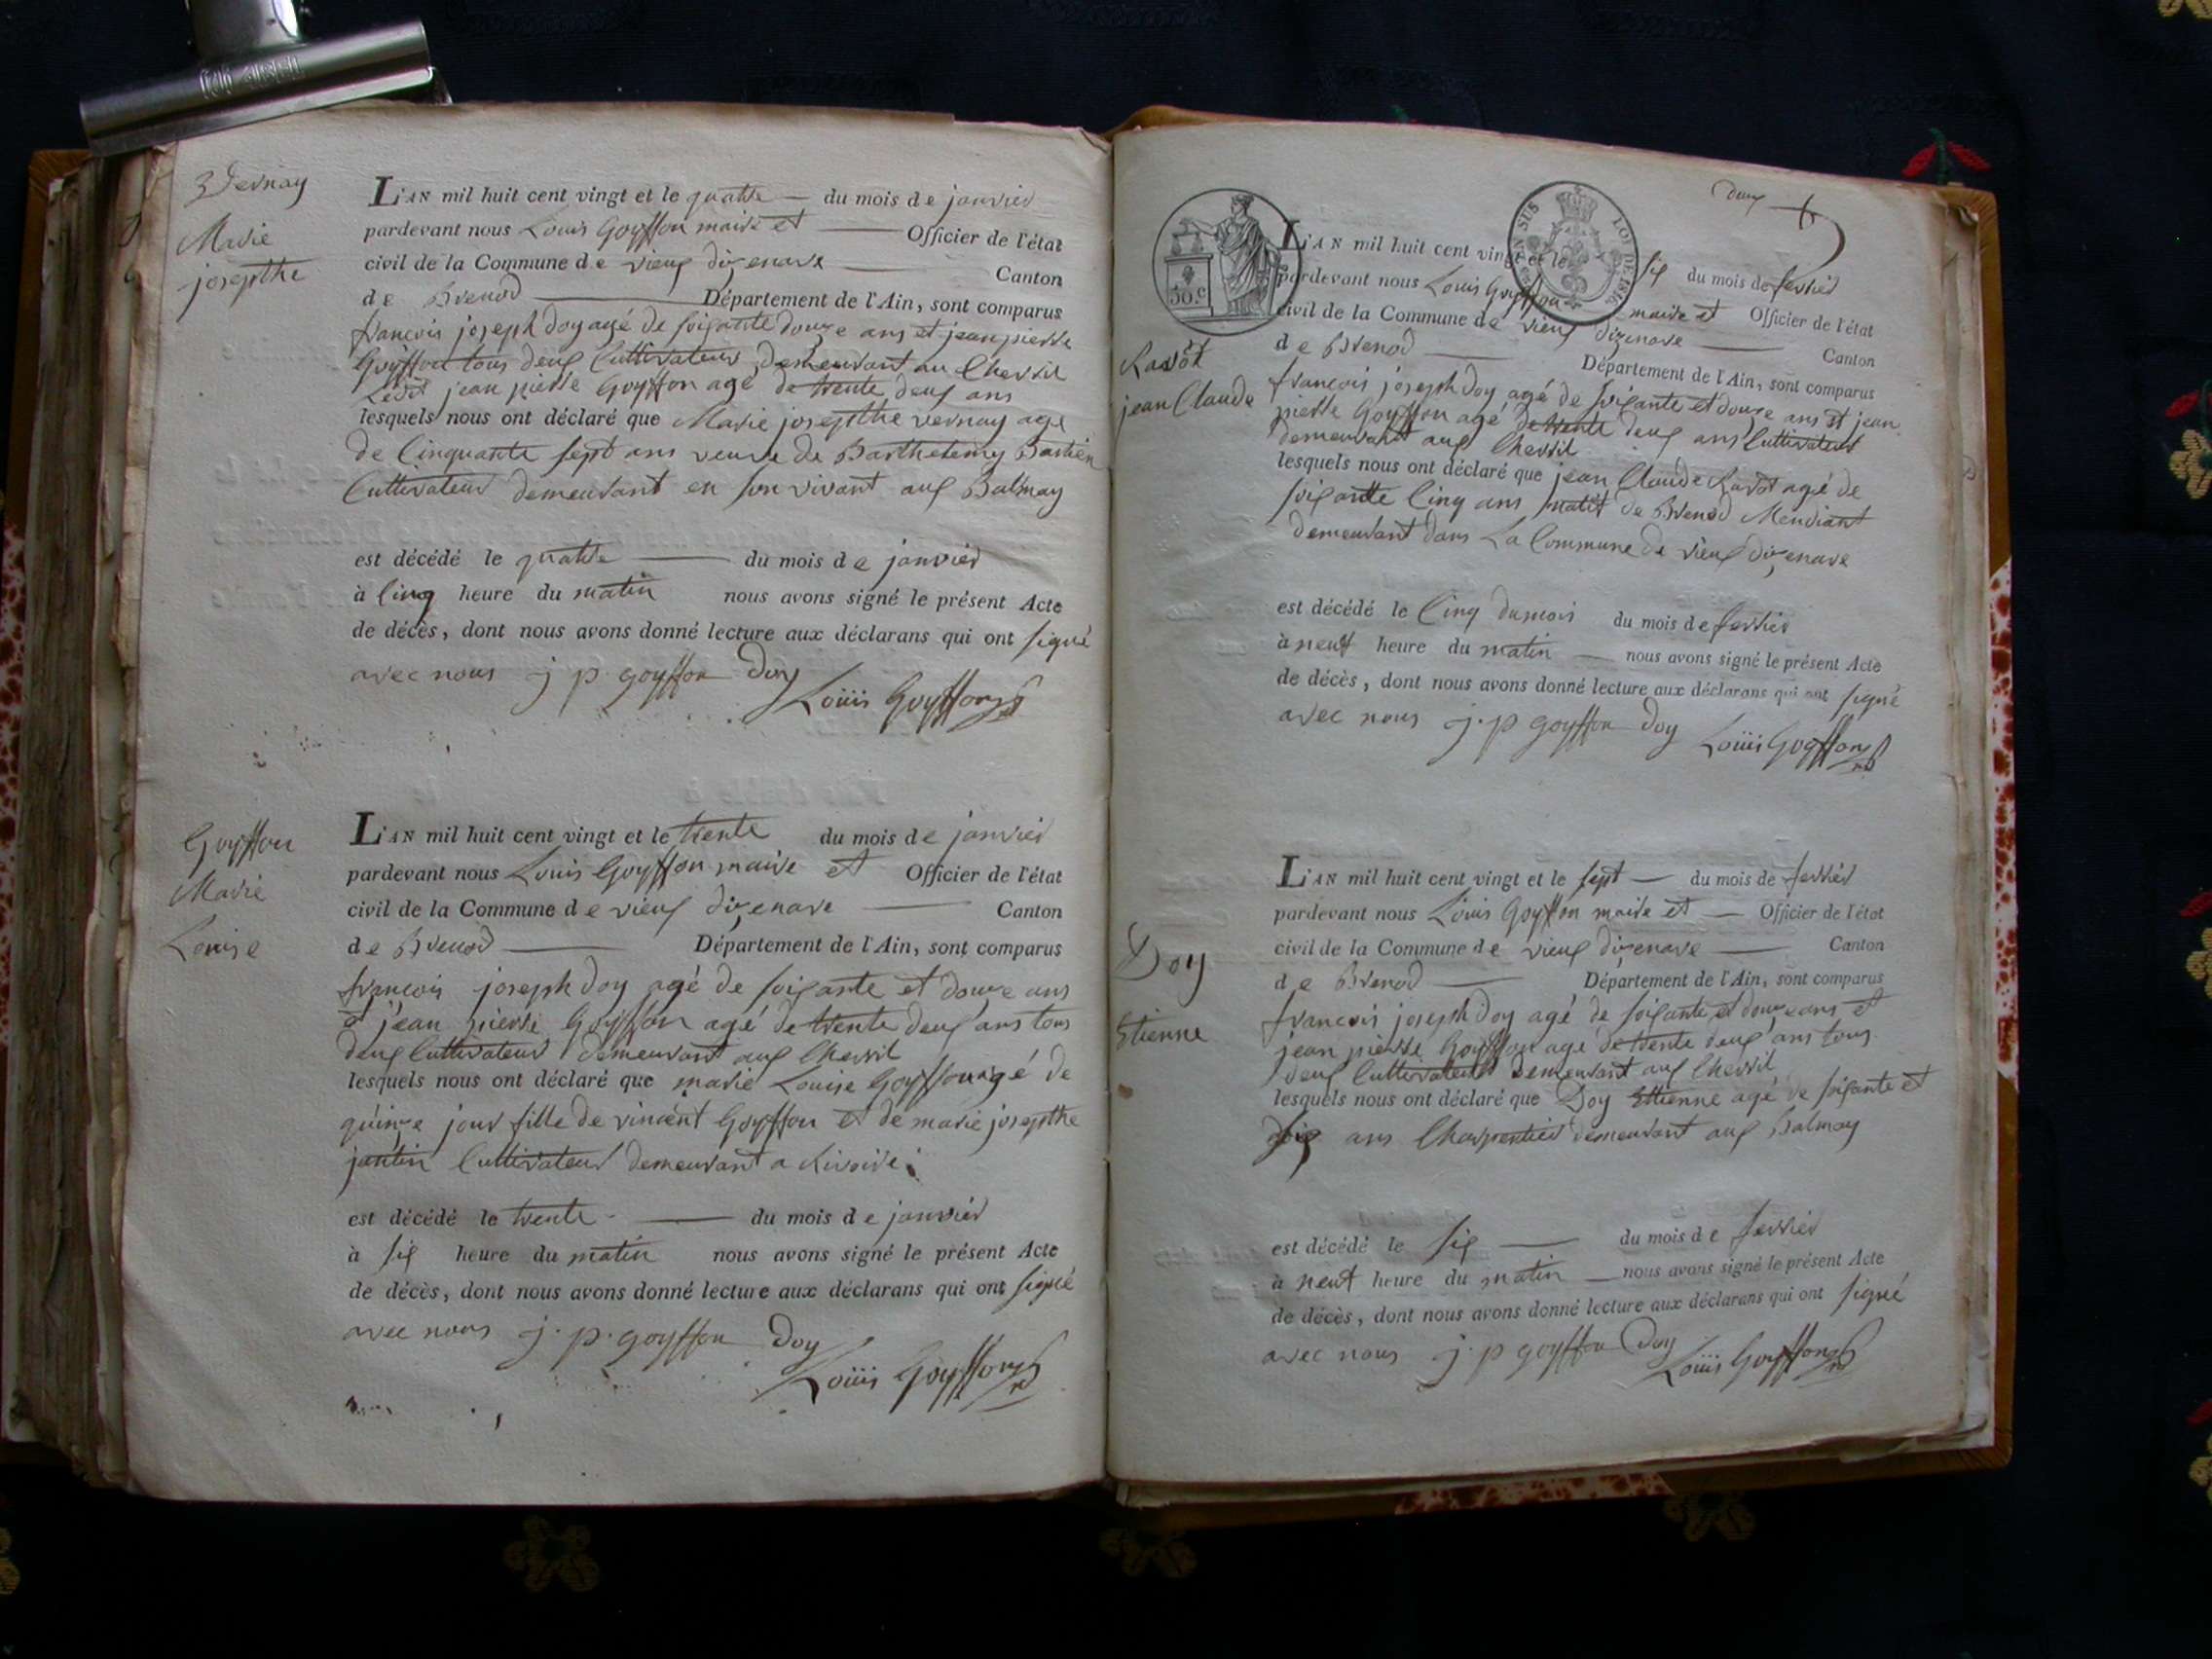 Vernay
Marie
josepthe
L'AN mil huit cent vingt et le quatre du mois de janvier
pardevant nous Louis Goyffon maire et Officier de l'état
civil de la Commune de vieux dizenave Canton
de Brenod Département de l'Ain, sont comparus
francois joseph doy agé de soixante douze ans et jean pierre
Goyffon tous deux Cultivateurs demeurant au Chevril
Ledit jean pierre Goyffon agé de trente deux ans
lesquels nous ont déclaré que Marie josepthe vernay agé
de Cinquante sept ans veuve de Barthelemy Bastien
Cultivateur demeurant en son vivant aux Balmay
est décédé le quatre du mois de janvier
à Cinq heure du matin nous avons signé le présent Acte
de décès, dont nous avons donné lecture aux déclarans qui ont signé
avec nous j p goyffon Doy
Loüis Goyffon
Goyffon
Marie
Louise
L'AN mil huit cent vingt et le trente du mois de janvier
pardevant nous Louis Goyffon maire et Officier de l'état
civil de la Commune de vieux dizenave Canton
de Brenod Département de l'Ain, sont comparus
francois joseph doy agé de soixante et douze ans
et jean pierre Goyffon agé de trente deux ans tous
deux Cultivateur demeurant aux Chevril
lesquels nous ont déclaré que marie Louise Goyffon agé de
quinze jour fille de vincent Goyffon et de marie josepthe
jantin Cultivateur demeurant a Rivoire
est décédé le trente du mois de janvier
à six heure du matin nous avons signé le présent Acte
de décès, dont nous avons donné lecture aux déclarans qui ont signé
avec nous j. p. goyffon Doy
Loüis Goyffon
deux
50.c
EN SUS LOI DE 1816.
Ravot
jean Claude
L'AN mil huit cent vingt et le six du mois de fevrier
pardevant nous Louis Goyffon maire et Officier de l'état
civil de la Commune de vieux dizenave Canton
de Brenod Département de l'Ain, sont comparus
francois joseph doy agé de soixante et douze ans et jean
pierre Goyffon agé de trente deux ans Cultivateur
demeurant aux Chevril
lesquels nous ont déclaré que jean Claude Ravot agé de
soixante Cinq ans natif de Brenod Mendiant
demeurant dans La Commune de vieux dizenave
est décédé le Cinq du mois du mois de fevrier
à neuf heure du matin nous avons signé le présent Acte
de décès, dont nous avons donné lecture aux déclarans qui ont signé
avec nous j. p goyffon Doy Loüis Goyffon
Doy
Etienne
L'AN mil huit cent vingt et le sept du mois de fevrier
pardevant nous Louis Goyffon maire et Officier de l'état
civil de la Commune de vieux dizenave Canton
de Brenod Département de l'Ain, sont comparus
francois joseph Doy agé de soixante et douze ans et
jean pierre Goyffon agé de trente deux ans tous
deux Cultivateur demeurant aux Chevril
lesquels nous ont déclaré que Doy Ettienne agé de soixante et
ans Charpentier demeurant aux Balmay
est décédé le six du mois de fevrier
à neuf heure du matin nous avons signé le présent Acte
de décès, dont nous avons donné lecture aux déclarans qui ont signé
avec nous j. p goyffon Doy
Loüis Goyffon